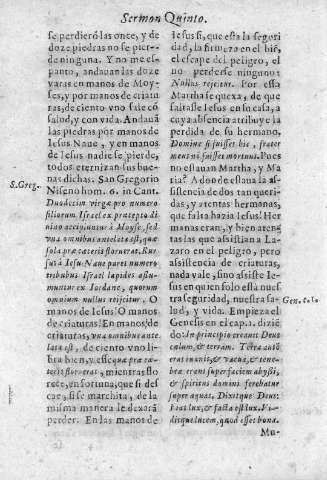 Sermon Quinto.
se perdierõ las once, y de
doze piedras no se pier-
de ninguna. Y no me es-
panto, andauan las doze
varas en manos de Moy-
ses, y por manos de criatu
ras, de ciento vno sale cõ
salud, y con vida. Andauã
las piedras por manos de
Iesus Naue, y en manos
de Iesus nadie se pierde,
todos eternizan sus bue-
nas dichas. San Gregorio
S. Greg.
Niseno hom. 6. in Cant.
Duodecim virgæ pro numero
filiorum Israel ex præcepto di
uino accipiuntur à Moyse, sed
vna omnibus antelata est, quæ
sola præ cæteris floruerat. Rur
sus à Iesu Naue pares numero
tribubus Israel lapides assu-
muntur ex Iordane, quorum
omnium nullus reijcitur. O
manos de Iesus! O manos
de criaturas! En manos de
criaturas, vna omnibus ante
lata est, de ciento vno li-
bra bien, y esse quæ præ cæ-
teris floruerat, mientras flo
rece, en fortuna, que si des
cae, si se marchita, de la
misma manera le dexarã
perder. En las manos de
Iesus si, que està la seguri
dad, la firmeza en el bië,
el escape del peligro, el
no perderse ninguno:
Nullus rejcitur. Por esta
Martha se quexa, de que
faltasse Iesus en su casa, a
cuya absencia atribuye la
perdida de su hermano.
Domine si fuisses hic, frater
meus nõ fuisset mortuus. Pues
no estauan Martha, y Ma
ria? A donde estaua la as-
sistencia de dos tan queri-
das, y atentas hermanas,
que falta hazia Iesus! Her
manas eran, y bien aten-
tas las que assistian a La-
zaro en el peligro, pero
assistencia de criaturas,
nada vale, sino assiste Ie-
sus en quien solo està nues
tra seguridad, nuestra sa-
lud, y vida. Empieza el
Gen. c. 1.
Genesis en el cap. 1. dizië
do: In principio creauit Deus
cœlum, & terram. Terra autē
erat inanis, & vacua, & tene-
bræ erant super faciem abyssi,
& spiritus domini ferebatur
super aquas. Dixitque Deus:
Fiat lux, & facta est lux. Vi-
disque lucem, quod esset bona.
Mu-